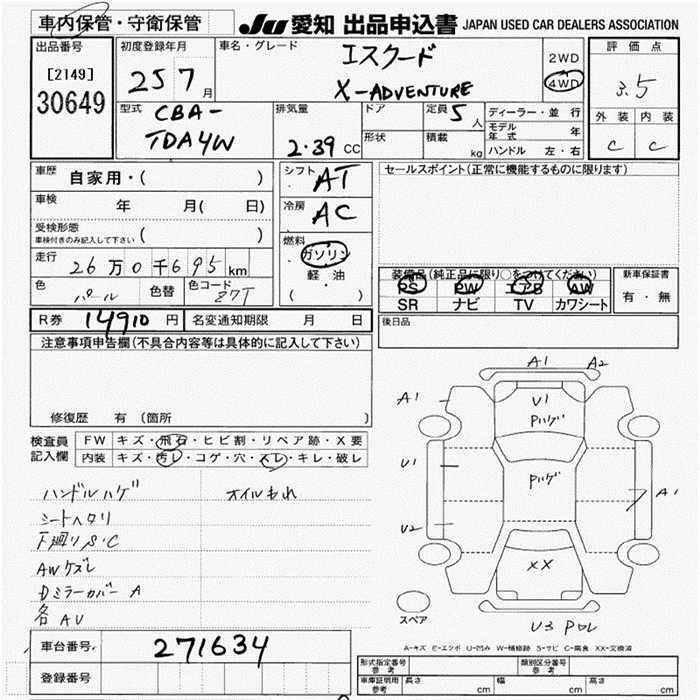 車内保管・守衛保管
JU 愛知 出品申込書 JAPAN USED CAR DEALERS ASSOCIATION
出品番号
[2149]
30649
初度登録年月
25 7月
車名・グレード
エスクード
X-ADVENTURE
2WD
4WD
評価点
3.5
外装 内装
C C
型式
CBA-
TDA4W
排気量
2.39 CC
ドア
定員 5人
形状
積載 kg
ディーラー・並行
モデル年式 年
ハンドル 左・右
車歴 自家用・( )
車検 年 月( 日)
受検形態
車検付きのみ記入して下さい ( )
走行 26万0千695km
色 パール 色替 色コード Z7T
シフト AT
冷房 AC
燃料
ガソリン
軽・油
( )
セールスポイント(正常に機能するものに限ります)
装備品(純正品に限り○をつけてください)
PS PW エアB AW
SR ナビ TV カワシート
新車保証書
有・無
後日品
R券 14910円 名変通知期限 月 日
注意事項申告欄(不具合内容等は具体的に記入して下さい)
修復歴 有(箇所
検査員記入欄
FW キズ・飛石・ヒビ割・リペア跡・X要
内装 キズ・汚レ・コゲ・穴・スレ・キレ・破レ
ハンドルハゲ オイルもれ
シートヘタリ
下廻りS・C
AWケズレ
Dミラーカバー A
各AU
A1 A2
A1
U1
Pハゲ
U1
Pハゲ
A1
U2
XX
スペア
U3 Pワレ
A-キズ E-エクボ U-凹み W-補修跡 S-サビ C-腐食 XX-交換済
車台番号 271634
登録番号
形式指定番号参考
類別区分番号参考
車庫証明用参考 長さ cm 幅 cm 高さ cm